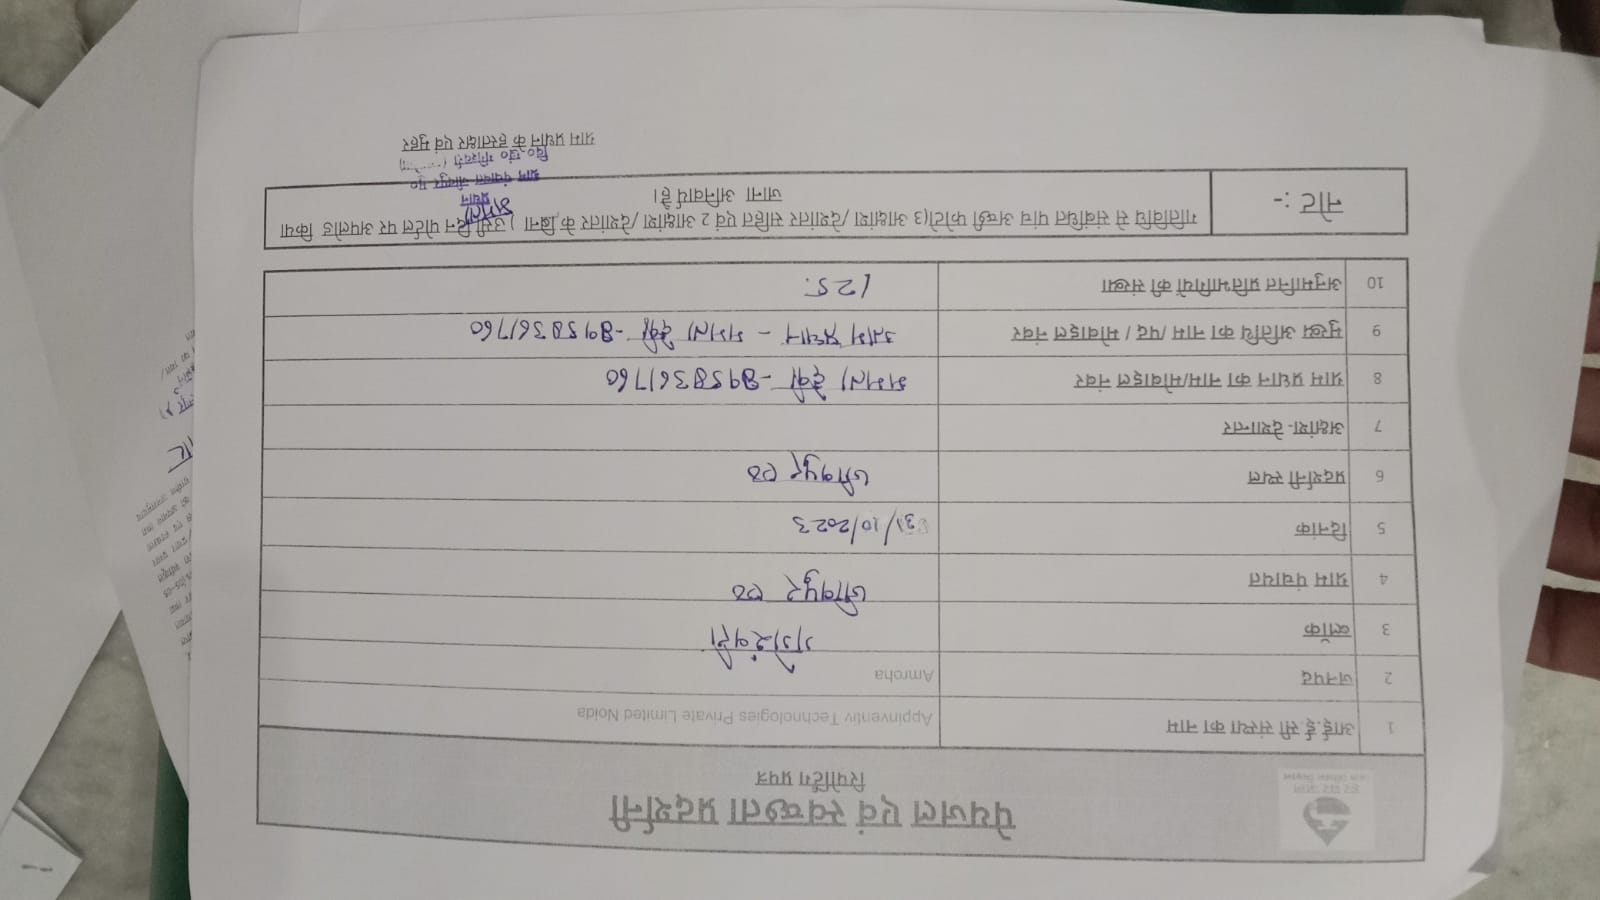 हर घर जल
जल जीवन मिशन
पेयजल एवं स्वच्छता प्रदर्शनी
रिपोर्टिंग प्रपत्र
1 आई.ई.सी संस्था का नाम Appinventiv Technologies Private Limited Noida
2 जनपद Amroha
3 ब्लॉक गंगेश्वरी
4 ग्राम पंचायत जीवपुर
5 दिनांक 31/10/2023
6 प्रदर्शनी स्थल जीवपुर
7 अक्षांश- देशान्तर
8 ग्राम प्रधान का नाम/मोबाइल नंबर ममता देवी - 8958361760
9 मुख्य अतिथि का नाम /पद / मोबाइल नंबर ग्राम प्रधान - ममता देवी - 8958361760
10 अनुमानित प्रतिभागियों की संख्या 125
नोट :- गतिविधि से संबंधित पांच अच्छी फोटो(3 आक्षांश /देशांतर सहित एवं 2 आक्षांश /देशांतर के बिना ) उसी दिन पोर्टल पर अपलोड किया
जाना अनिवार्य है।
ममता
प्रधान
ग्राम पंचायत
ग्राम प्रधान के हस्ताक्षर एवं मुहर